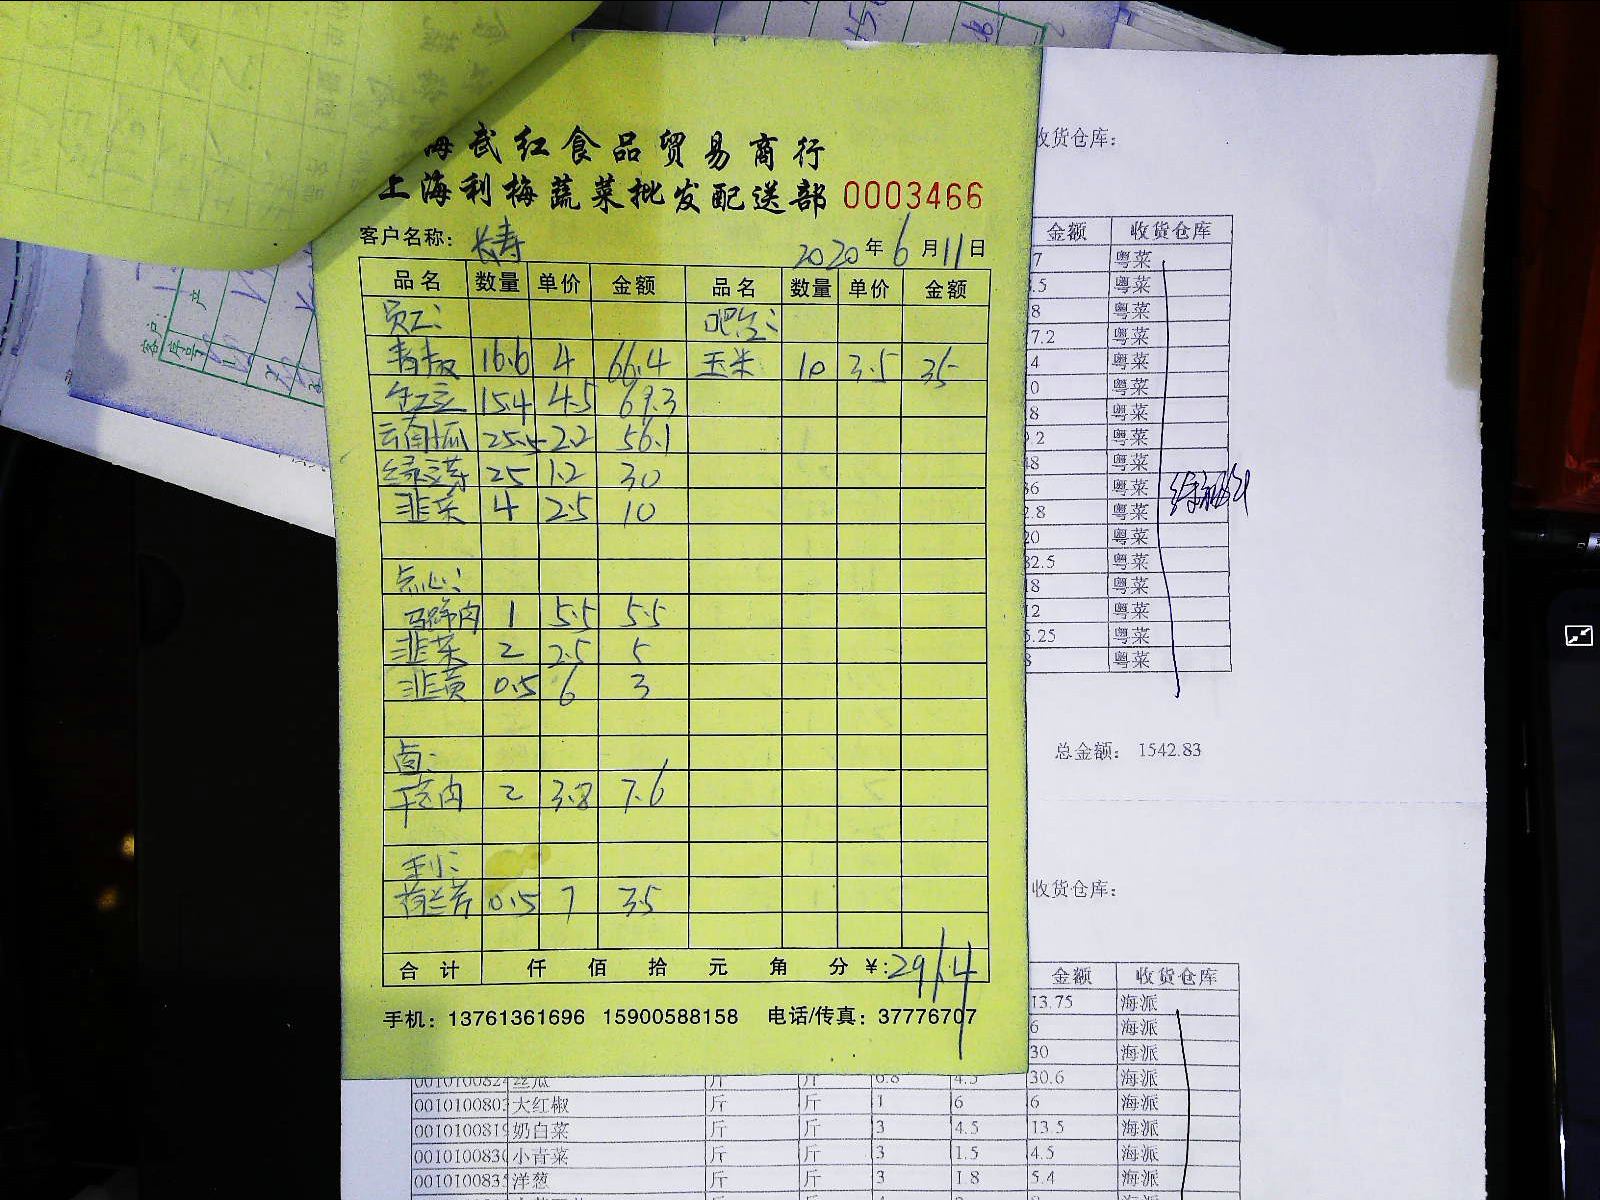 海武红食品贸易商行
上海利梅蔬菜批发配送部 0003466
客户名称: 长寿 2020年6月11日
品名 数量 单价 金额 品名 数量 单价 金额
员工: 吧台:
青椒 16.6 4 66.4 玉米 10 3.5 35
15.4 4.5 69.3
云南小瓜 25.5 2.2 56.1
绿豆芽 25 1.2 30
韭菜 4 2.5 10
点心:
马蹄肉 1 5.5 5.5
韭菜 2 2.5 5
韭黄 0.5 6 3
卤:
2 3.8 7.6
荷兰芹 0.5 7 3.5
合计 仟 佰 拾 元 角 分 ¥:291.4
手机: 13761361696 15900588158 电话/传真: 37776707
收货仓库:
金额 收货仓库
7 粤菜
.5 粤菜
8 粤菜
7.2 粤菜
4 粤菜
0 粤菜
8 粤菜
.2 粤菜
48 粤菜
36 粤菜
2.8 粤菜
20 粤菜
32.5 粤菜
18 粤菜
12 粤菜
5.25 粤菜
8 粤菜
总金额: 1542.83
收货仓库:
金额 收货仓库
13.75 海派
6 海派
30 海派
0010100824 丝瓜 斤 斤 6.8 4.5 30.6 海派
0010100803 大红椒 斤 斤 1 6 6 海派
0010100819 奶白菜 斤 斤 3 4.5 13.5 海派
001010083 小青菜 斤 斤 3 1.5 4.5 海派
0010100835 洋葱 斤 斤 3 1.8 5.4 海派